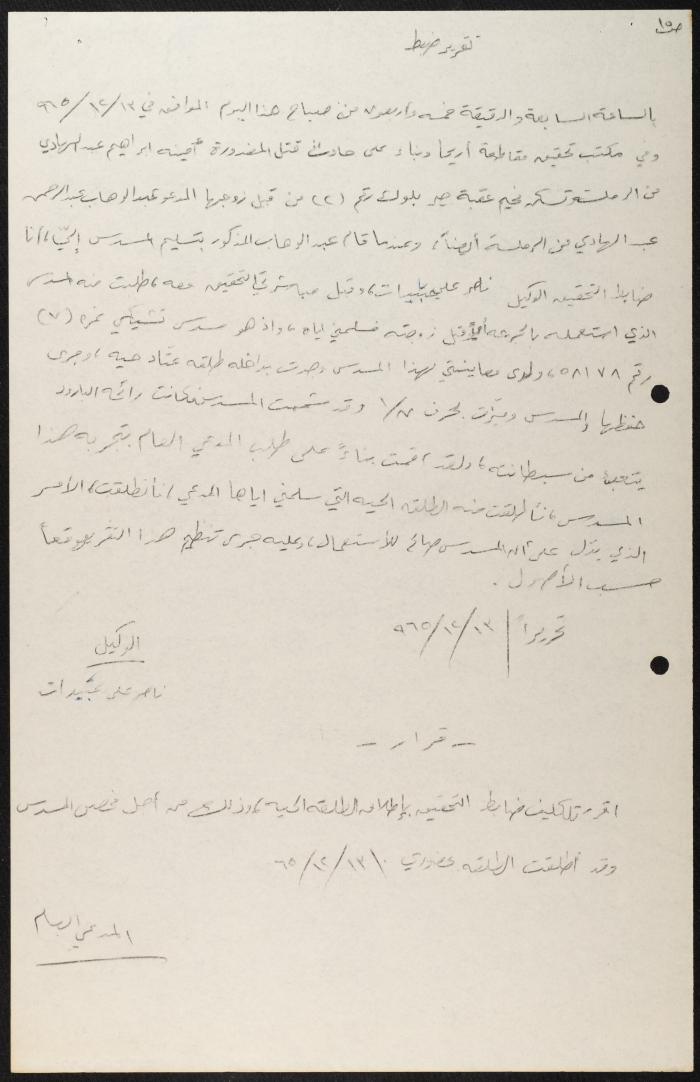 ص ١٥
تقرير ضبط
بالساعة السابعة والدقيقة خمسه وأربعون من صباح هذا اليوم الموافق في ٩٦٥/١٢/١٣
وفي مكتب تحقيق مقاطعة أريحا وبناء على حادث قتل المغدورة أمينه ابراهيم عبد الهادي
من الرملة وتسكن مخيم عقبة جبر بلوك رقم (٢٢) من قبل زوجها المدعو عبد الوهاب عبد الرحمن
عبد الهادي من الرملة أيضاً، وعندما قام عبد الوهاب المذكور بتسليم المسدس إليّ، أنا
ضابط التحقيق الوكيل ناصر علي عبيدات، وقبل مباشرتي التحقيق معه، طلبت منه المسدس
الذي استعمله بالجريمة قتل زوجته فسلمني اياه، واذ هو مسدس تشيكي نمره (٧)
رقم ٥٨١٧٨، ولدى معاينتي لهذا المسدس وجدت بداخله طلقه عتاد حيه، وجرى
حفظها والمسدس وميزت بحرف وقد شممت المسدس فكانت رائحه البارود
تنبعث من سبطانته، ولقد قمت بناءً على طلب المدعي العام بتجربه هذا
المسدس، فأطلقت منه الطلقه الحيه التي سلمني اياها المدعي، فأنطلقت، الأمر
الذي يدل على أن المسدس صالح للأستعمال، وعليه جرى تنظيم هذا التقرير موقعاً
حسب الأصول.
تحريراً ٩٦٥/١٢/١٣
الوكيل
ناصر علي عبيدات
- قرار -
اقرر تكليف ضابط التحقيق بإطلاق الطلقه الحيه، وذلك من أجل فحص المسدس
وقد أطلقت الطلقه بحضوري ٦٥/١٢/١٣
المدعي العام